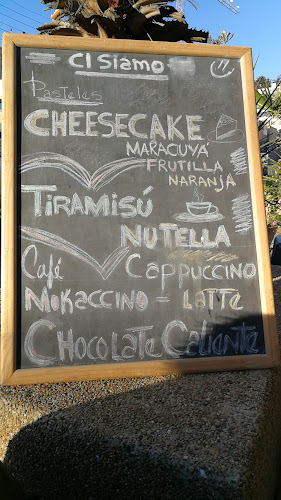 CI SIAMO
Pasteles
CHEESECAKE
MARACUYÁ
FRUTILLA
NARANJA
TIRAMISÚ
NUTELLA
Café CAPPUCCINO
MOKACCINO - LATTE
CHOCOLATE CALIENTE